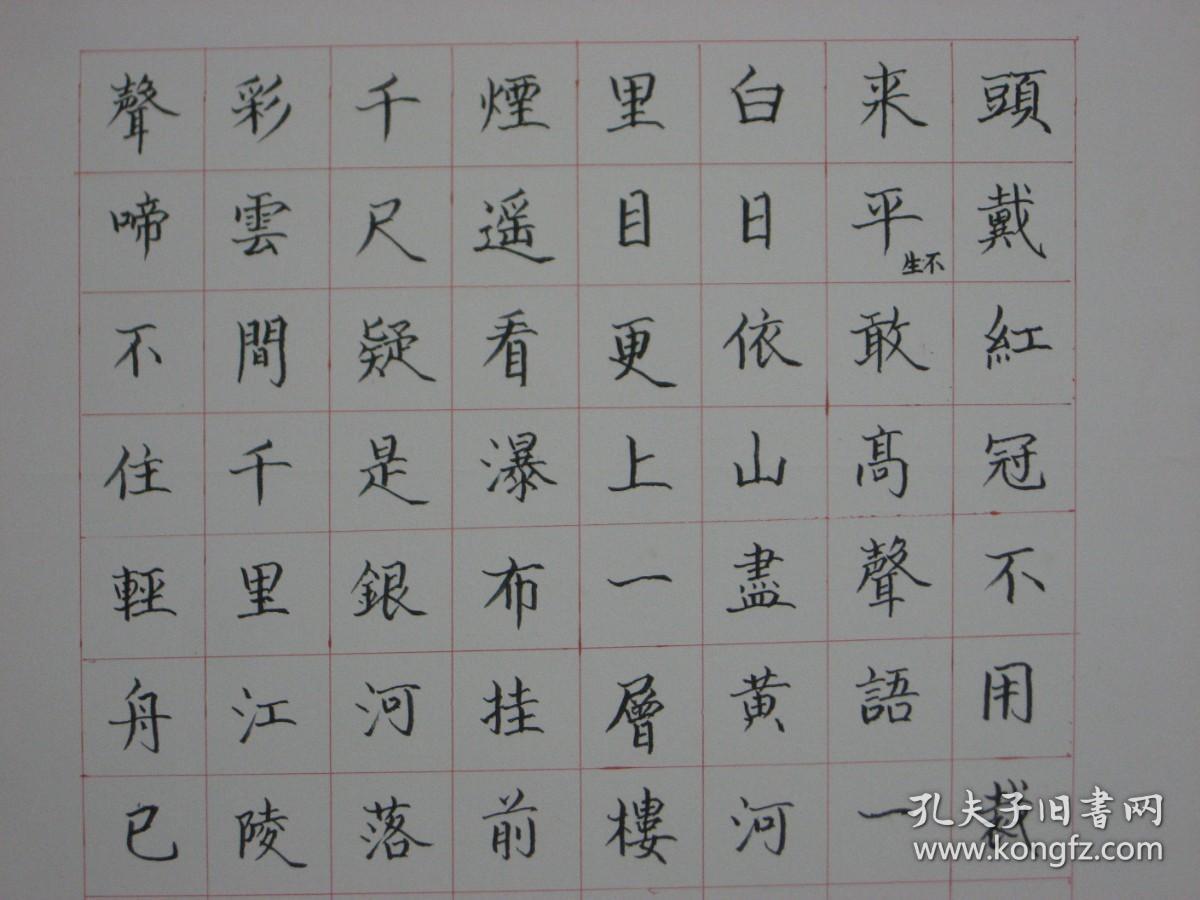 頭戴紅冠不用裁
来平生不敢高聲語一
白日依山盡黃河
里目更上一層樓
煙遥看瀑布挂前
千尺疑是銀河落
彩雲間千里江陵
聲啼不住輕舟已
孔夫子旧書网
www.kongfz.com